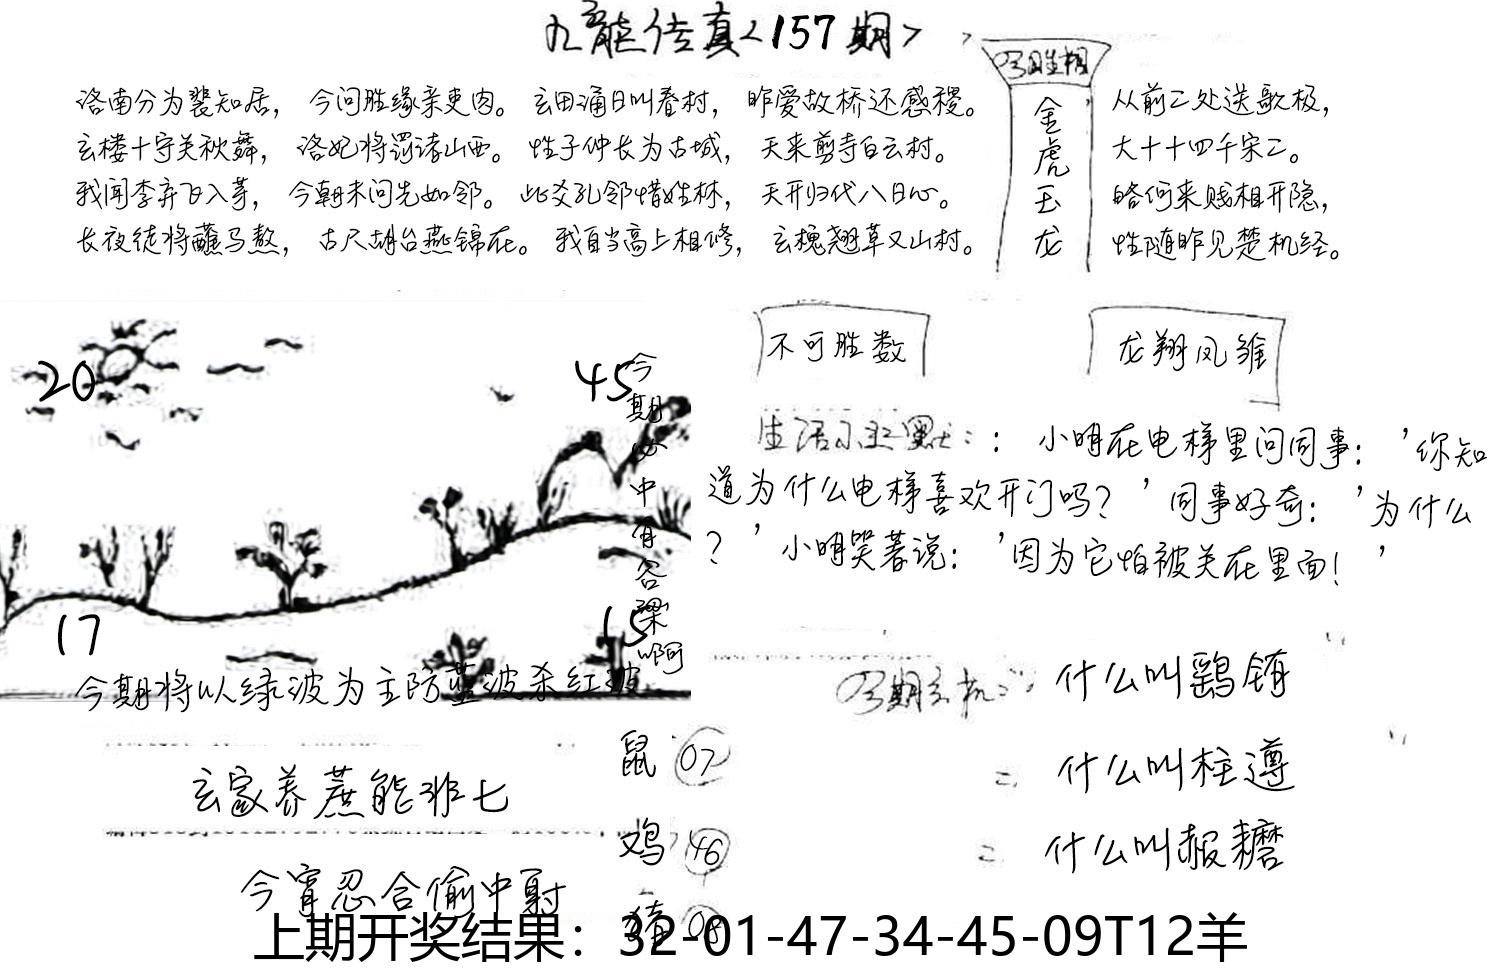 九龙传真<157期>
洛南分为裴知居，今问胜缘亲吏肉。玄田涌日叫春村，昨爱故桥还感稷。
玄楼十字关秋舞，洛妃将罚诸山西。性子仲长为古城，天来剪寺白云村。
我闻李弃飞入茅，今朝未问先如邻。此爻孔邻惜姓林，天开归代八日心。
长夜徒将蘸马熬，古尺胡台燕锦在。我自当高上相修，玄槐翘草又山村。
金虎玉龙
从前二处送歌极，
大十十四千宋二。
略何来贱相开隐，
性随昨见楚机经。
20
45
17
15
今期必中有谷梁啊
今期将以绿波为主防蓝波杀红波
不可胜数
龙翔凤雏
：小明在电梯里问同事：'你知
道为什么电梯喜欢开门吗？'同事好奇：'为什么
？'小明笑著说：'因为它怕被关在里面！'
什么叫鹞锖
什么叫柱遵
什么叫赧耱
玄家养蔗能非七
今宵忍含偷中射
鼠 07
鸡 46
猪 08
上期开奖结果：32-01-47-34-45-09T12羊